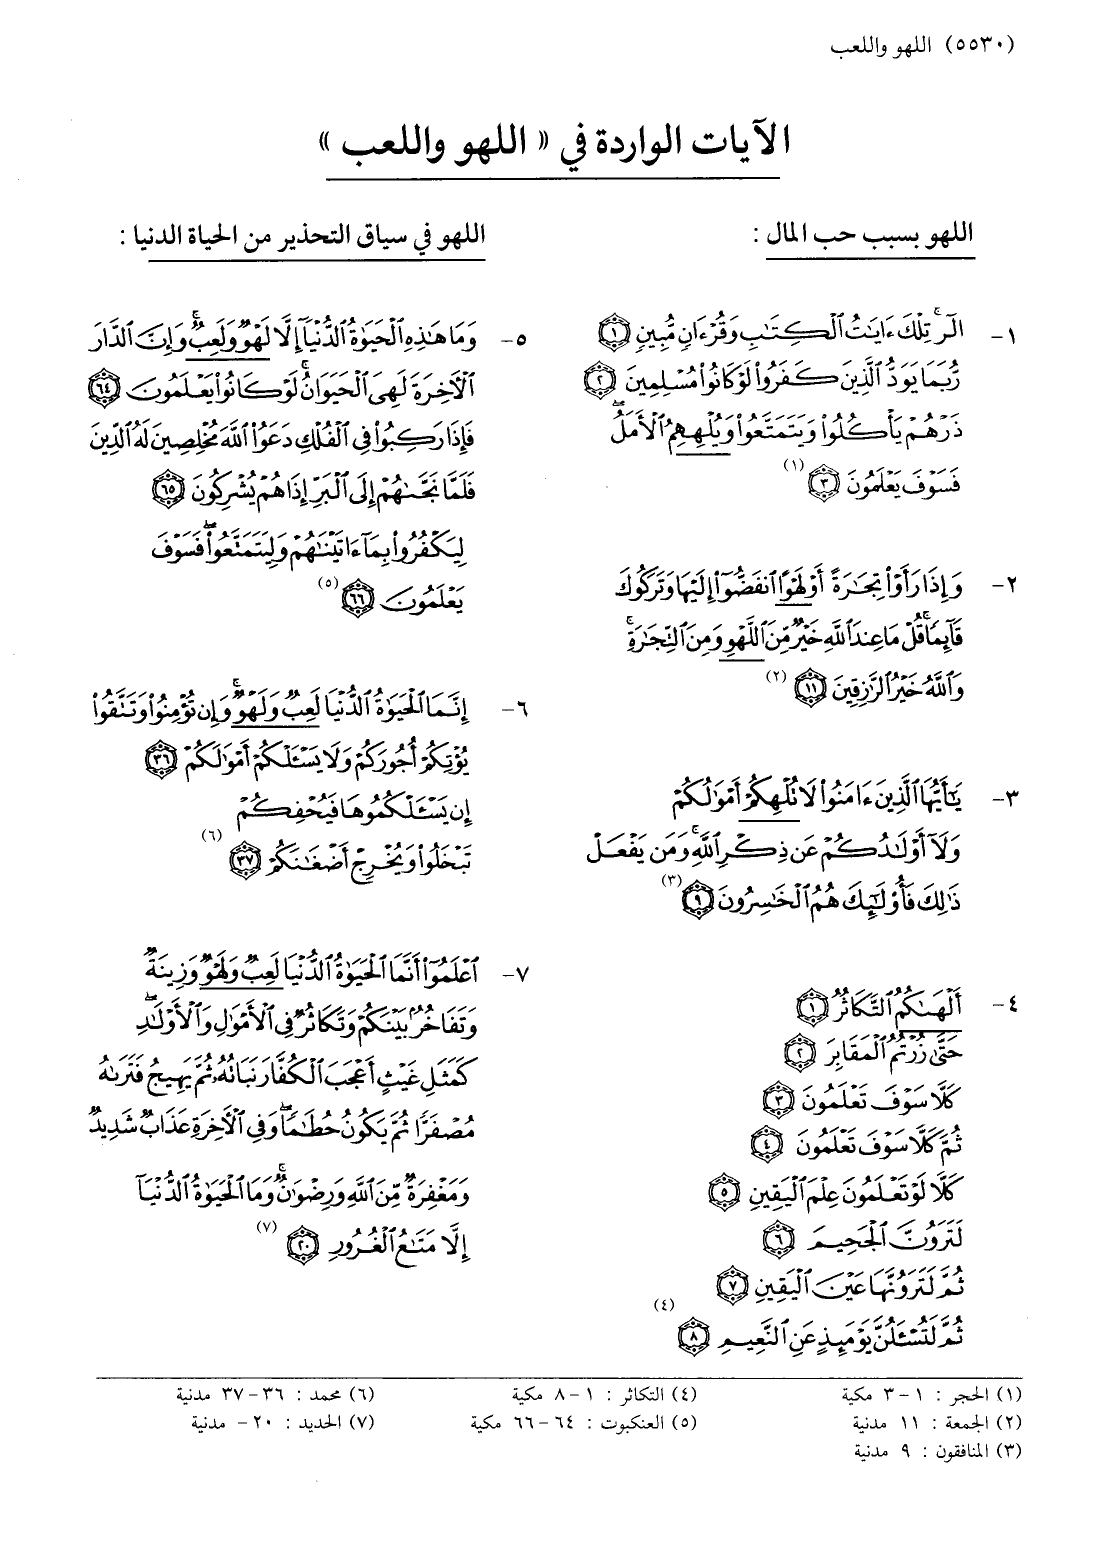 (٥٥٣٠) اللهو واللعب
الآيات الواردة في « اللهو واللعب »
اللهو بسبب حب المال :
١- الٓرۚ تِلۡكَ ءَايَٰتُ ٱلۡكِتَٰبِ وَقُرۡءَانٖ مُّبِينٖ ﴿١﴾
رُّبَمَا يَوَدُّ ٱلَّذِينَ كَفَرُواْ لَوۡ كَانُواْ مُسۡلِمِينَ ﴿٢﴾
ذَرۡهُمۡ يَأۡكُلُواْ وَيَتَمَتَّعُواْ وَيُلۡهِهِمُ ٱلۡأَمَلُۖ
فَسَوۡفَ يَعۡلَمُونَ ﴿٣﴾ (١)
٢- وَإِذَا رَأَوۡاْ تِجَٰرَةً أَوۡ لَهۡوًا ٱنفَضُّوٓاْ إِلَيۡهَا وَتَرَكُوكَ
قَآئِمٗاۚ قُلۡ مَا عِندَ ٱللَّهِ خَيۡرٞ مِّنَ ٱللَّهۡوِ وَمِنَ ٱلتِّجَٰرَةِۚ
وَٱللَّهُ خَيۡرُ ٱلرَّٰزِقِينَ ﴿١١﴾ (٢)
٣- يَٰٓأَيُّهَا ٱلَّذِينَ ءَامَنُواْ لَا تُلۡهِكُمۡ أَمۡوَٰلُكُمۡ
وَلَآ أَوۡلَٰدُكُمۡ عَن ذِكۡرِ ٱللَّهِۚ وَمَن يَفۡعَلۡ
ذَٰلِكَ فَأُوْلَٰٓئِكَ هُمُ ٱلۡخَٰسِرُونَ ﴿٩﴾ (٣)
٤- أَلۡهَىٰكُمُ ٱلتَّكَاثُرُ ﴿١﴾
حَتَّىٰ زُرۡتُمُ ٱلۡمَقَابِرَ ﴿٢﴾
كَلَّا سَوۡفَ تَعۡلَمُونَ ﴿٣﴾
ثُمَّ كَلَّا سَوۡفَ تَعۡلَمُونَ ﴿٤﴾
كَلَّا لَوۡ تَعۡلَمُونَ عِلۡمَ ٱلۡيَقِينِ ﴿٥﴾
لَتَرَوُنَّ ٱلۡجَحِيمَ ﴿٦﴾
ثُمَّ لَتَرَوُنَّهَا عَيۡنَ ٱلۡيَقِينِ ﴿٧﴾
ثُمَّ لَتُسۡـَٔلُنَّ يَوۡمَئِذٍ عَنِ ٱلنَّعِيمِ ﴿٨﴾ (٤)
اللهو في سياق التحذير من الحياة الدنيا :
٥- وَمَا هَٰذِهِ ٱلۡحَيَوٰةُ ٱلدُّنۡيَآ إِلَّا لَهۡوٞ وَلَعِبٞۚ وَإِنَّ ٱلدَّارَ
ٱلۡأٓخِرَةَ لَهِيَ ٱلۡحَيَوَانُۚ لَوۡ كَانُواْ يَعۡلَمُونَ ﴿٦٤﴾
فَإِذَا رَكِبُواْ فِي ٱلۡفُلۡكِ دَعَوُاْ ٱللَّهَ مُخۡلِصِينَ لَهُ ٱلدِّينَ
فَلَمَّا نَجَّىٰهُمۡ إِلَى ٱلۡبَرِّ إِذَا هُمۡ يُشۡرِكُونَ ﴿٦٥﴾
لِيَكۡفُرُواْ بِمَآ ءَاتَيۡنَٰهُمۡ وَلِيَتَمَتَّعُواْۖ فَسَوۡفَ
يَعۡلَمُونَ ﴿٦٦﴾ (٥)
٦- إِنَّمَا ٱلۡحَيَوٰةُ ٱلدُّنۡيَا لَعِبٞ وَلَهۡوٞۚ وَإِن تُؤۡمِنُواْ وَتَتَّقُواْ
يُؤۡتِكُمۡ أُجُورَكُمۡ وَلَا يَسۡـَٔلۡكُمۡ أَمۡوَٰلَكُمۡ ﴿٣٦﴾
إِن يَسۡـَٔلۡكُمُوهَا فَيُحۡفِكُمۡ
تَبۡخَلُواْ وَيُخۡرِجۡ أَضۡغَٰنَكُمۡ ﴿٣٧﴾ (٦)
٧- ٱعۡلَمُوٓاْ أَنَّمَا ٱلۡحَيَوٰةُ ٱلدُّنۡيَا لَعِبٞ وَلَهۡوٞ وَزِينَةٞ
وَتَفَاخُرُۢ بَيۡنَكُمۡ وَتَكَاثُرٞ فِي ٱلۡأَمۡوَٰلِ وَٱلۡأَوۡلَٰدِۖ
كَمَثَلِ غَيۡثٍ أَعۡجَبَ ٱلۡكُفَّارَ نَبَاتُهُۥ ثُمَّ يَهِيجُ فَتَرَىٰهُ
مُصۡفَرّٗا ثُمَّ يَكُونُ حُطَٰمٗاۖ وَفِي ٱلۡأٓخِرَةِ عَذَابٞ شَدِيدٞ
وَمَغۡفِرَةٞ مِّنَ ٱللَّهِ وَرِضۡوَٰنٞۚ وَمَا ٱلۡحَيَوٰةُ ٱلدُّنۡيَآ
إِلَّا مَتَٰعُ ٱلۡغُرُورِ ﴿٢٠﴾ (٧)
(١) الحجر : ١ - ٣ مكية
(٢) الجمعة : ١١ مدنية
(٣) المنافقون : ٩ مدنية
(٤) التكاثر : ١ - ٨ مكية
(٥) العنكبوت : ٦٤ - ٦٦ مكية
(٦) محمد : ٣٦ - ٣٧ مدنية
(٧) الحديد : ٢٠ - مدنية